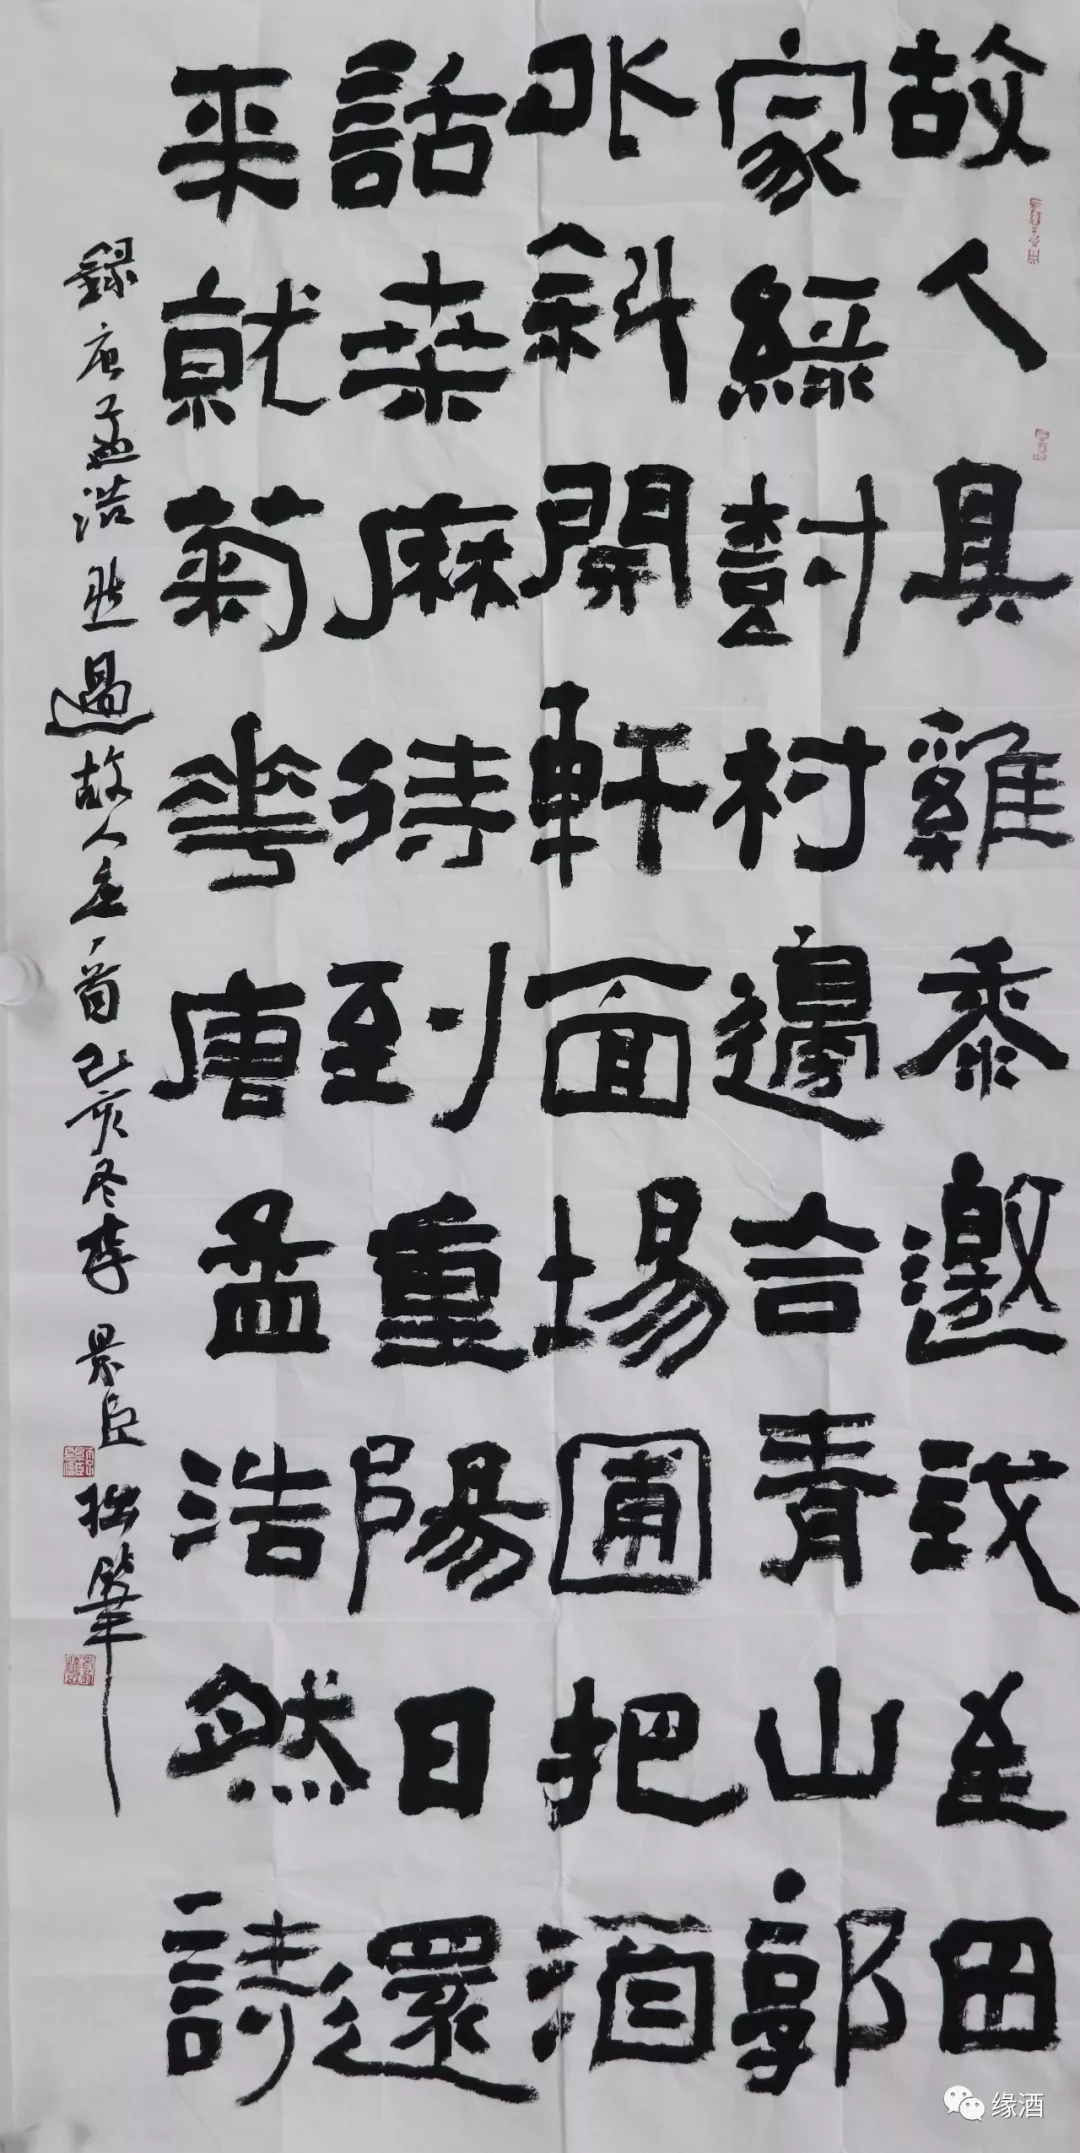 故人具雞黍邀我至田
家綠樹村邊合青山郭
外斜開軒面場圃把酒
話桑麻待到重陽日還
来就菊華唐孟浩然詩
錄唐孟浩然過故人莊一首己亥冬李景臣拙筆
缘酒